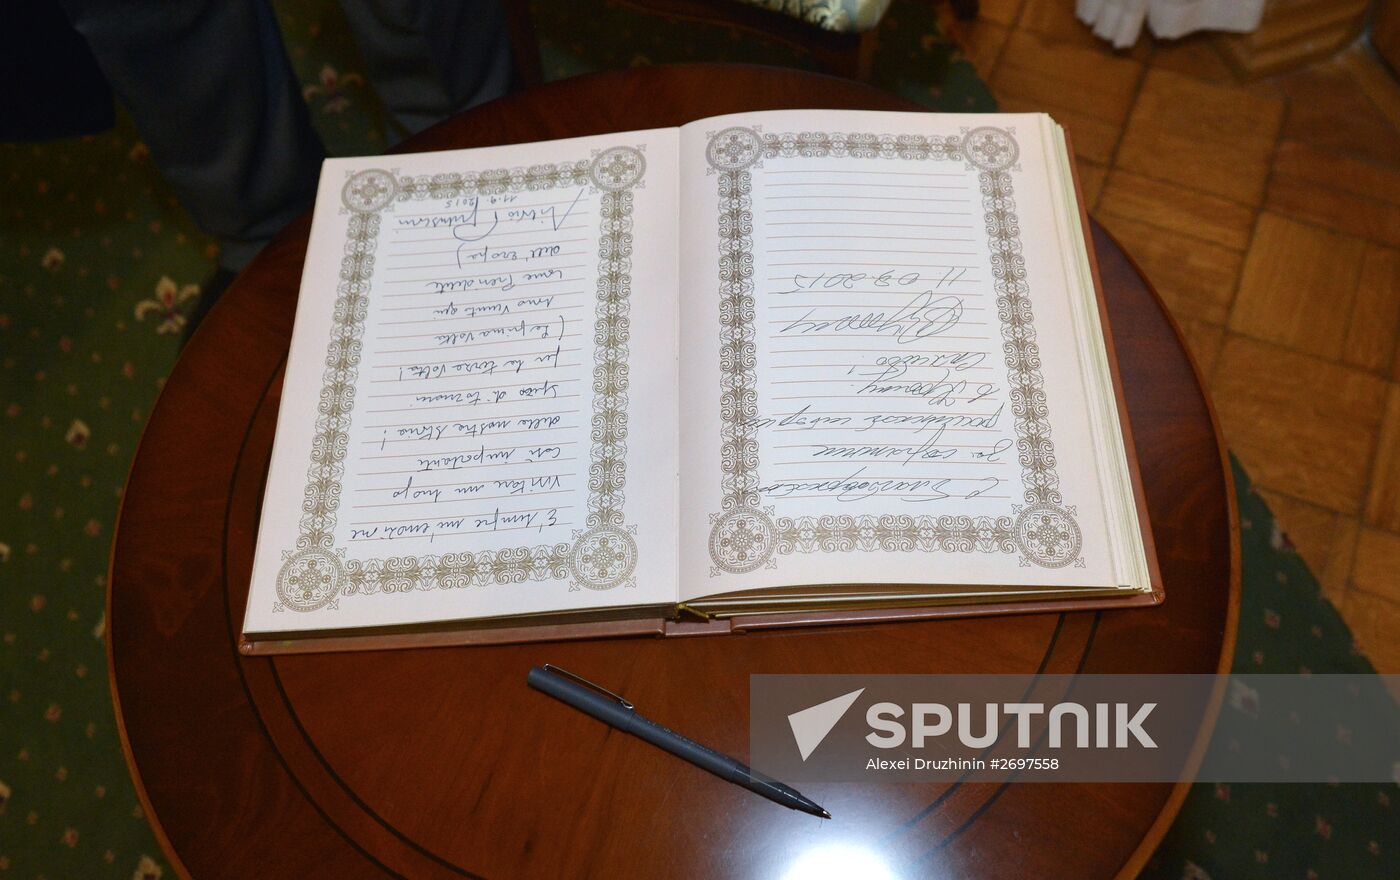 С благодарностью
за сохранение
российской истории
в Крыму.
Спасибо!
11.09.2015
E' sempre un'emozione
visitare un luogo
così importante
della nostra storia!
Spero di tornarci
per la terza volta!
(La prima volta
sono venuto qui
come Presidente
dell'Europa)
Silvio Berlusconi
11.9.2015
SPUTNIK
Alexei Druzhinin #2697558